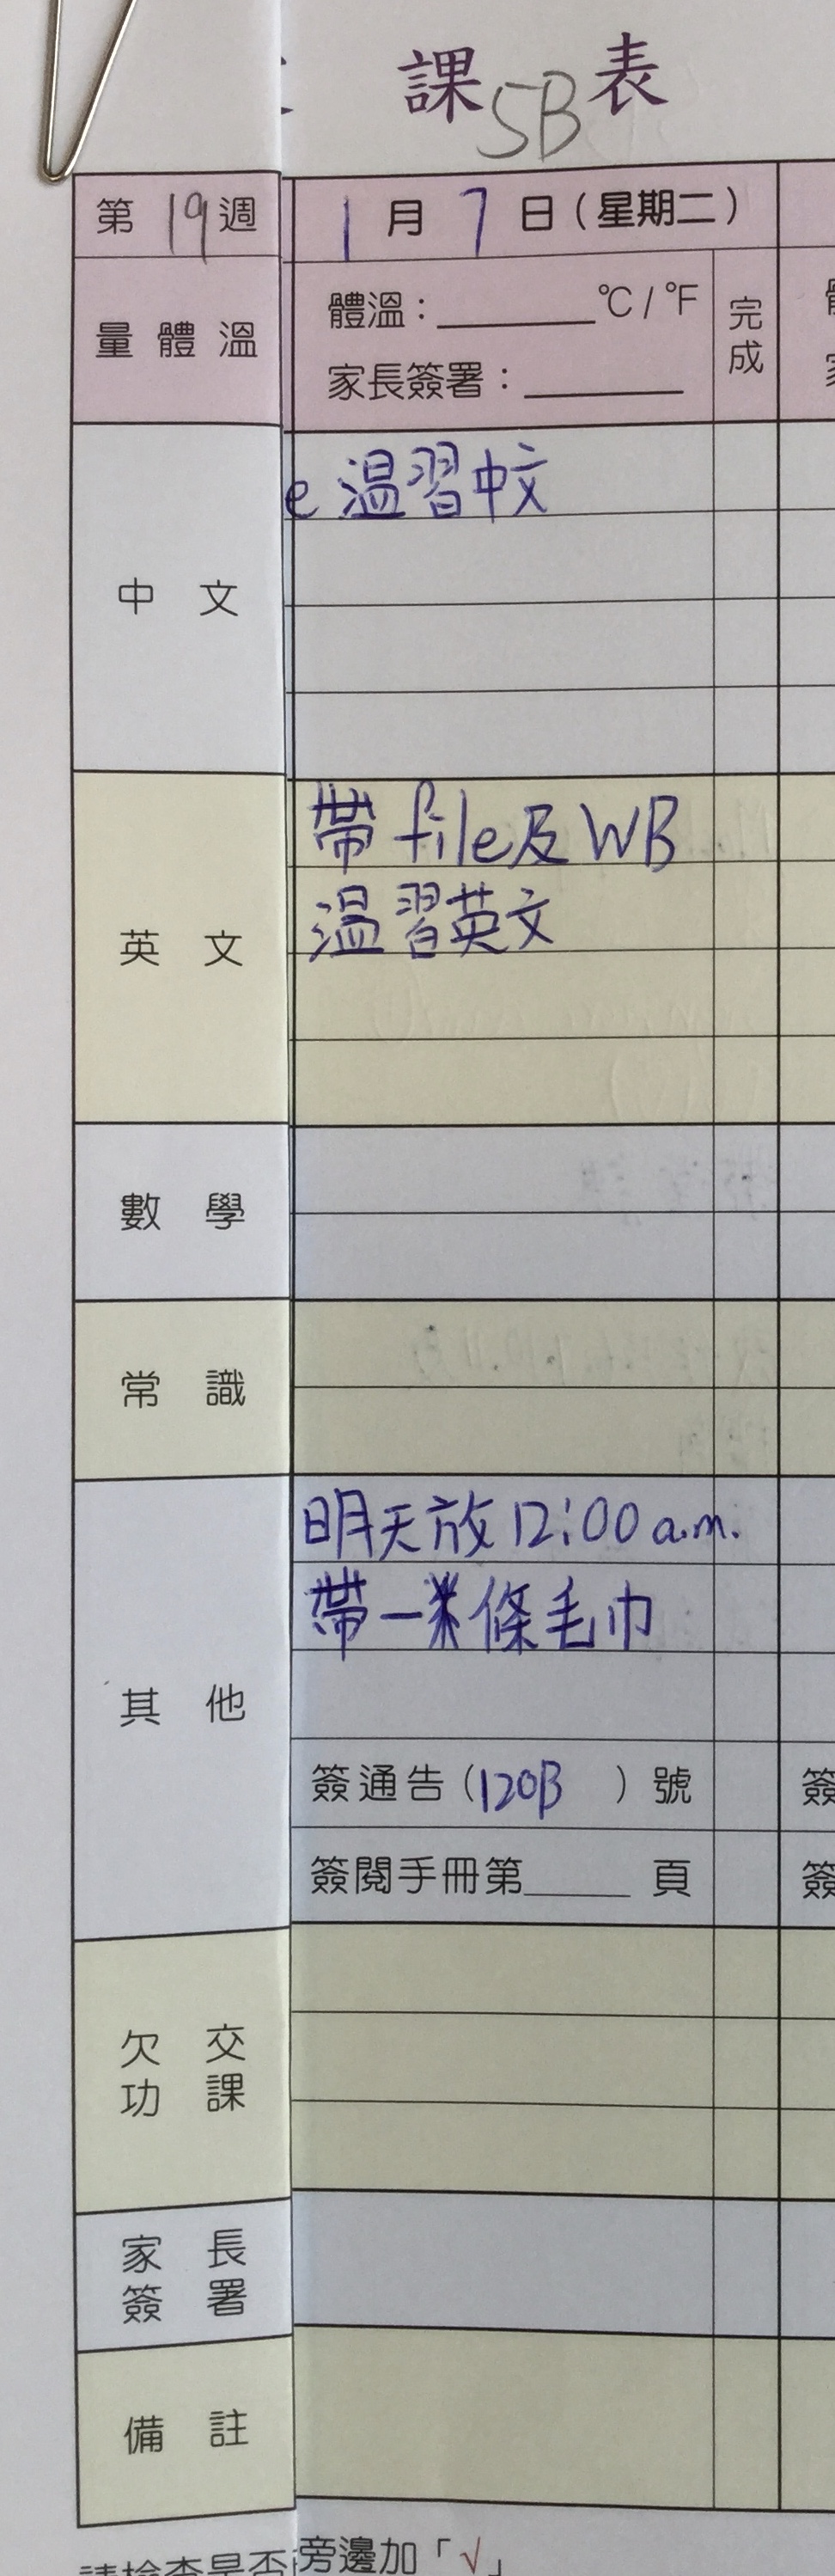 課 5B 表
第 19 週
1 月 7 日（星期二）
量體溫
體溫：______°C / °F
家長簽署：______
完成
中文
e 溫習中文
英文
帶 file及 WB
溫習英文
數學
常識
其他
明天放 12:00 a.m.
帶一條毛巾
簽通告（120B ）號
簽
簽閱手冊第____ 頁
簽
欠交功課
家長簽署
備註
請檢查是否
旁邊加「√」